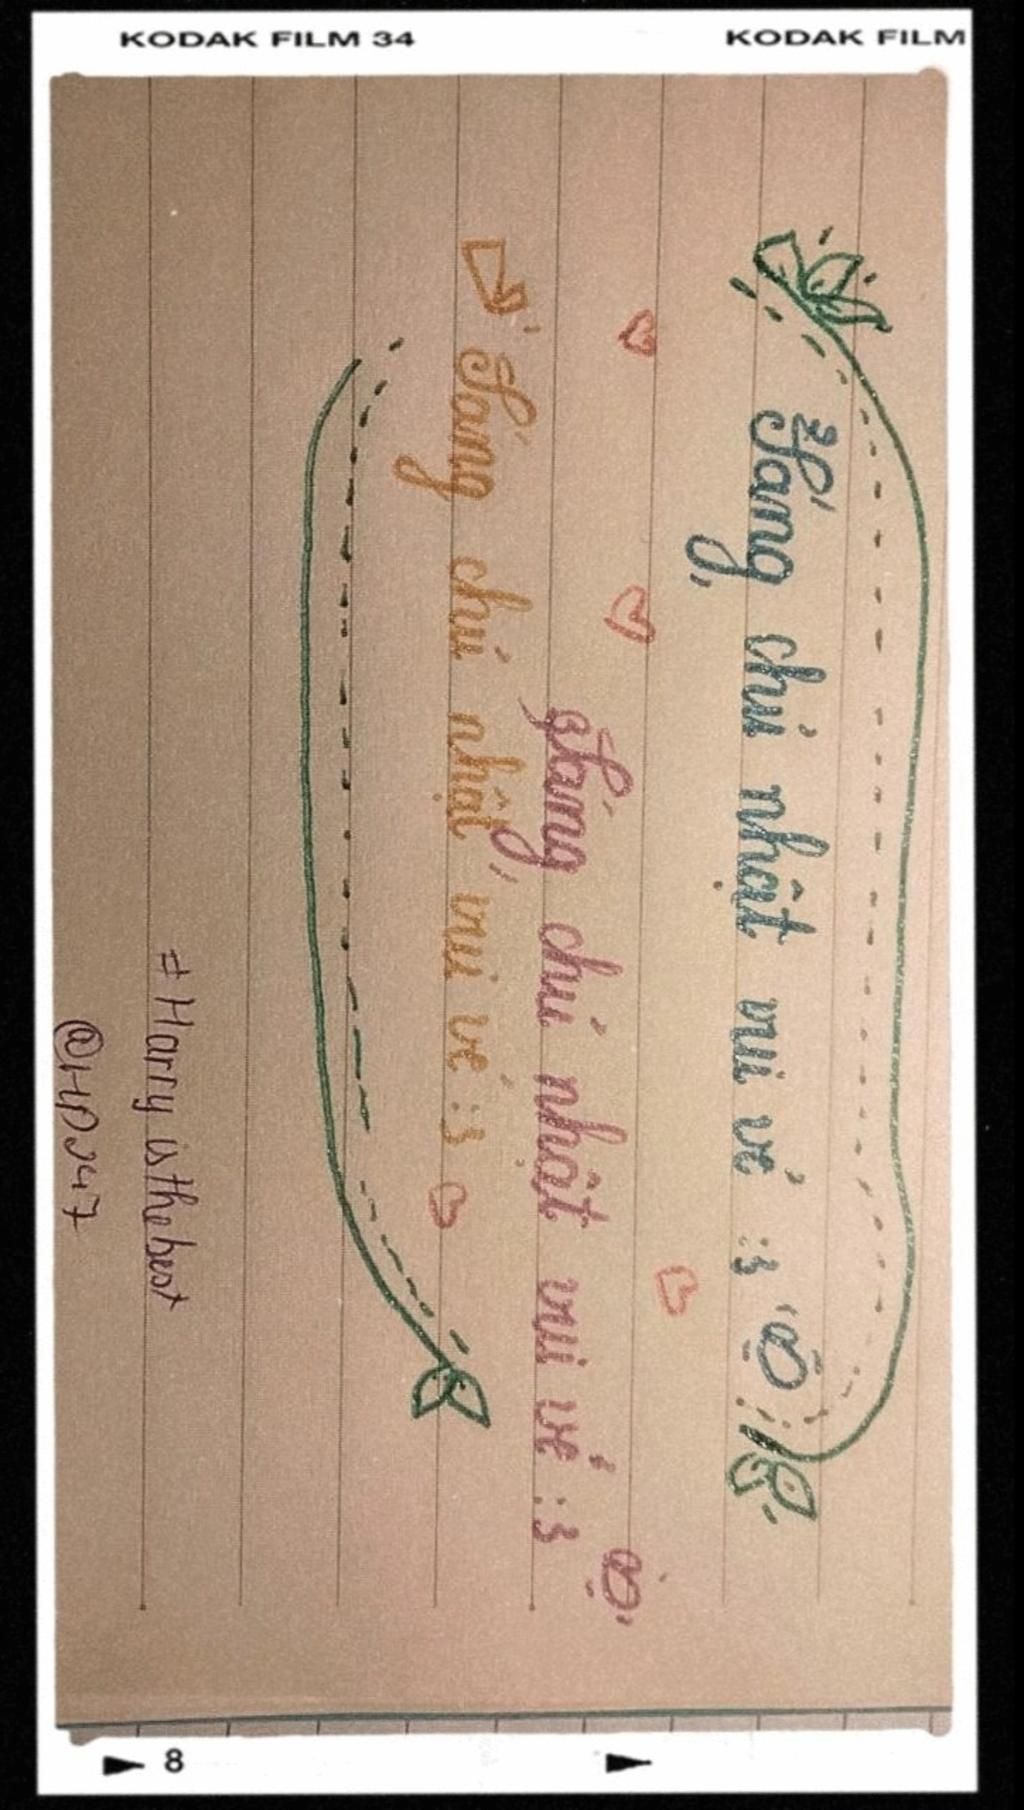 KODAK FILM 34 KODAK FILM
Sáng chủ nhật vui vẻ :3
Sáng chủ nhật vui vẻ :3
Sáng chủ nhật vui vẻ :3
Harry is the best
8